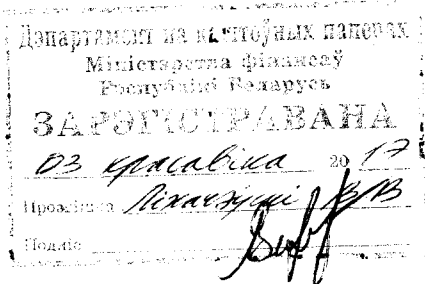 Дэпартамент па каштоўных паперах
Міністэрства фінансаў
Рэспублікі Беларусь
ЗАРЭГІСТРАВАНА
03 красавіка 2017
Прозвішча В В
Подпіс